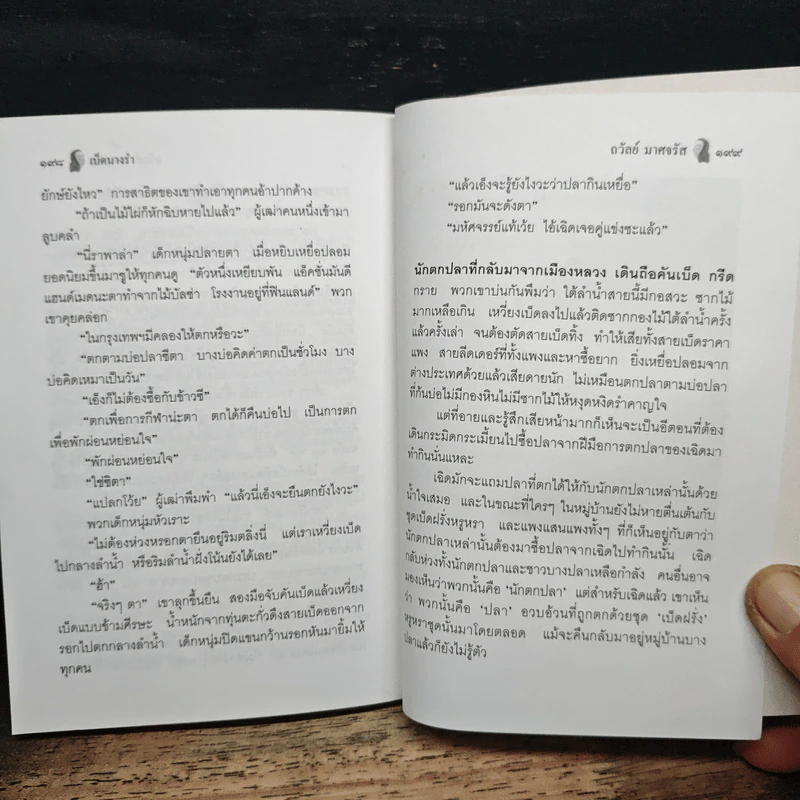 ๑๙๘ เบ็ดนางรำ
ยักษ์ยังไหว” การสาธิตของเขาทำเอาทุกคนอ้าปากค้าง
“ถ้าเป็นไม้ไผ่ก็หักฉิบหายไปแล้ว” ผู้เฒ่าคนหนึ่งเข้ามา
ลูบคลำ
“นี่ราพาล่า” เด็กหนุ่มปลายตา เมื่อหยิบเหยื่อปลอม
ยอดนิยมขึ้นมาชูให้ทุกคนดู “ตัวหนึ่งเหยียบพัน แอ็คชั่นมันดี
แฮนด์เมดนะตาทำจากไม้บัลซ่า โรงงานอยู่ที่ฟินแลนด์” พวก
เขาคุยคล่อก
“ในกรุงเทพฯมีคลองให้ตกหรือวะ”
“ตกตามบ่อปลาซีตา บางบ่อคิดค่าตกเป็นชั่วโมง บาง
บ่อคิดเหมาเป็นวัน”
“เอ็งก็ไม่ต้องซื้อกับข้าวซี”
“ตกเพื่อการกีฬาน่ะตา ตกได้ก็คืนบ่อไป เป็นการตก
เพื่อพักผ่อนหย่อนใจ”
“พักผ่อนหย่อนใจ”
“ใช่ซีตา”
“แปลกโว้ย” ผู้เฒ่าพึมพำ “แล้วนี่เอ็งจะยืนตกยังไงวะ”
พวกเด็กหนุ่มหัวเราะ
“ไม่ต้องห่วงหรอกตายืนอยู่ริมตลิ่งนี่ แต่เราเหวี่ยงเบ็ด
ไปกลางลำน้ำ หรือริมลำน้ำฝั่งโน้นยังได้เลย”
“ฮ้า”
“จริงๆ ตา” เขาลุกขึ้นยืน สองมือจับคันเบ็ดแล้วเหวี่ยง
เบ็ดแบบข้ามศีรษะ น้ำหนักจากทุ่นตะกั่วดึงสายเบ็ดออกจาก
รอกไปตกกลางลำน้ำ เด็กหนุ่มปิดแขนกว้านรอกหันมายิ้มให้
ทุกคน
ถวัลย์ มาศจรัส ๑๙๙
“แล้วเอ็งจะรู้ยังไงวะว่าปลากินเหยื่อ”
“รอกมันจะดังตา”
“มหัศจรรย์แท้เว้ย ไอ้เฉิดเจอคู่แข่งซะแล้ว”
นักตกปลาที่กลับมาจากเมืองหลวง เดินถือคันเบ็ด กรีด
กราย พวกเขาบ่นกันพึมว่า ใต้ลำน้ำสายนี้มีกอสวะ ซากไม้
มากเหลือเกิน เหวี่ยงเบ็ดลงไปแล้วติดซากกองไม้ใต้ลำน้ำครั้ง
แล้วครั้งเล่า จนต้องตัดสายเบ็ดทิ้ง ทำให้เสียทั้งสายเบ็ดราคา
แพง สายลีดเดอร์ที่ทั้งแพงและหาซื้อยาก ยิ่งเหยื่อปลอมจาก
ต่างประเทศด้วยแล้วเสียดายนัก ไม่เหมือนตกปลาตามบ่อปลา
ที่ก้นบ่อไม่มีกองหินไม่มีซากไม้ให้หงุดหงิดรำคาญใจ
แต่ที่อายและรู้สึกเสียหน้ามากก็เห็นจะเป็นอีตอนที่ต้อง
เดินกระมิดกระเมี้ยนไปซื้อปลาจากฝีมือการตกปลาของเฉิดมา
ทำกินนั่นแหละ
เฉิดมักจะแถมปลาที่ตกได้ให้กับนักตกปลาเหล่านั้นด้วย
น้ำใจเสมอ และในขณะที่ใครๆ ในหมู่บ้านยังไม่หายตื่นเต้นกับ
ชุดเบ็ดฝรั่งหรูหรา และแพงแสนแพงทั้งๆ ที่ก็เห็นอยู่กับตาว่า
นักตกปลาเหล่านั้นต้องมาซื้อปลาจากเฉิดไปทำกินนั้น เฉิด
กลับห่วงทั้งนักตกปลาและชาวบางปลาเหลือกำลัง คนอื่นอาจ
มองเห็นว่าพวกนั้นคือ ‘นักตกปลา’ แต่สำหรับเฉิดแล้ว เขาเห็น
ว่า พวกนั้นคือ ‘ปลา’ อวบอ้วนที่ถูกตกด้วยชุด ‘เบ็ดฝรั่ง’
หรูหราชุดนั้นมาโดยตลอด แม้จะคืนกลับมาอยู่หมู่บ้านบาง
ปลาแล้วก็ยังไม่รู้ตัว